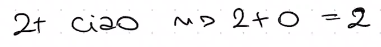 2+ ciao ~> 2+0 = 2